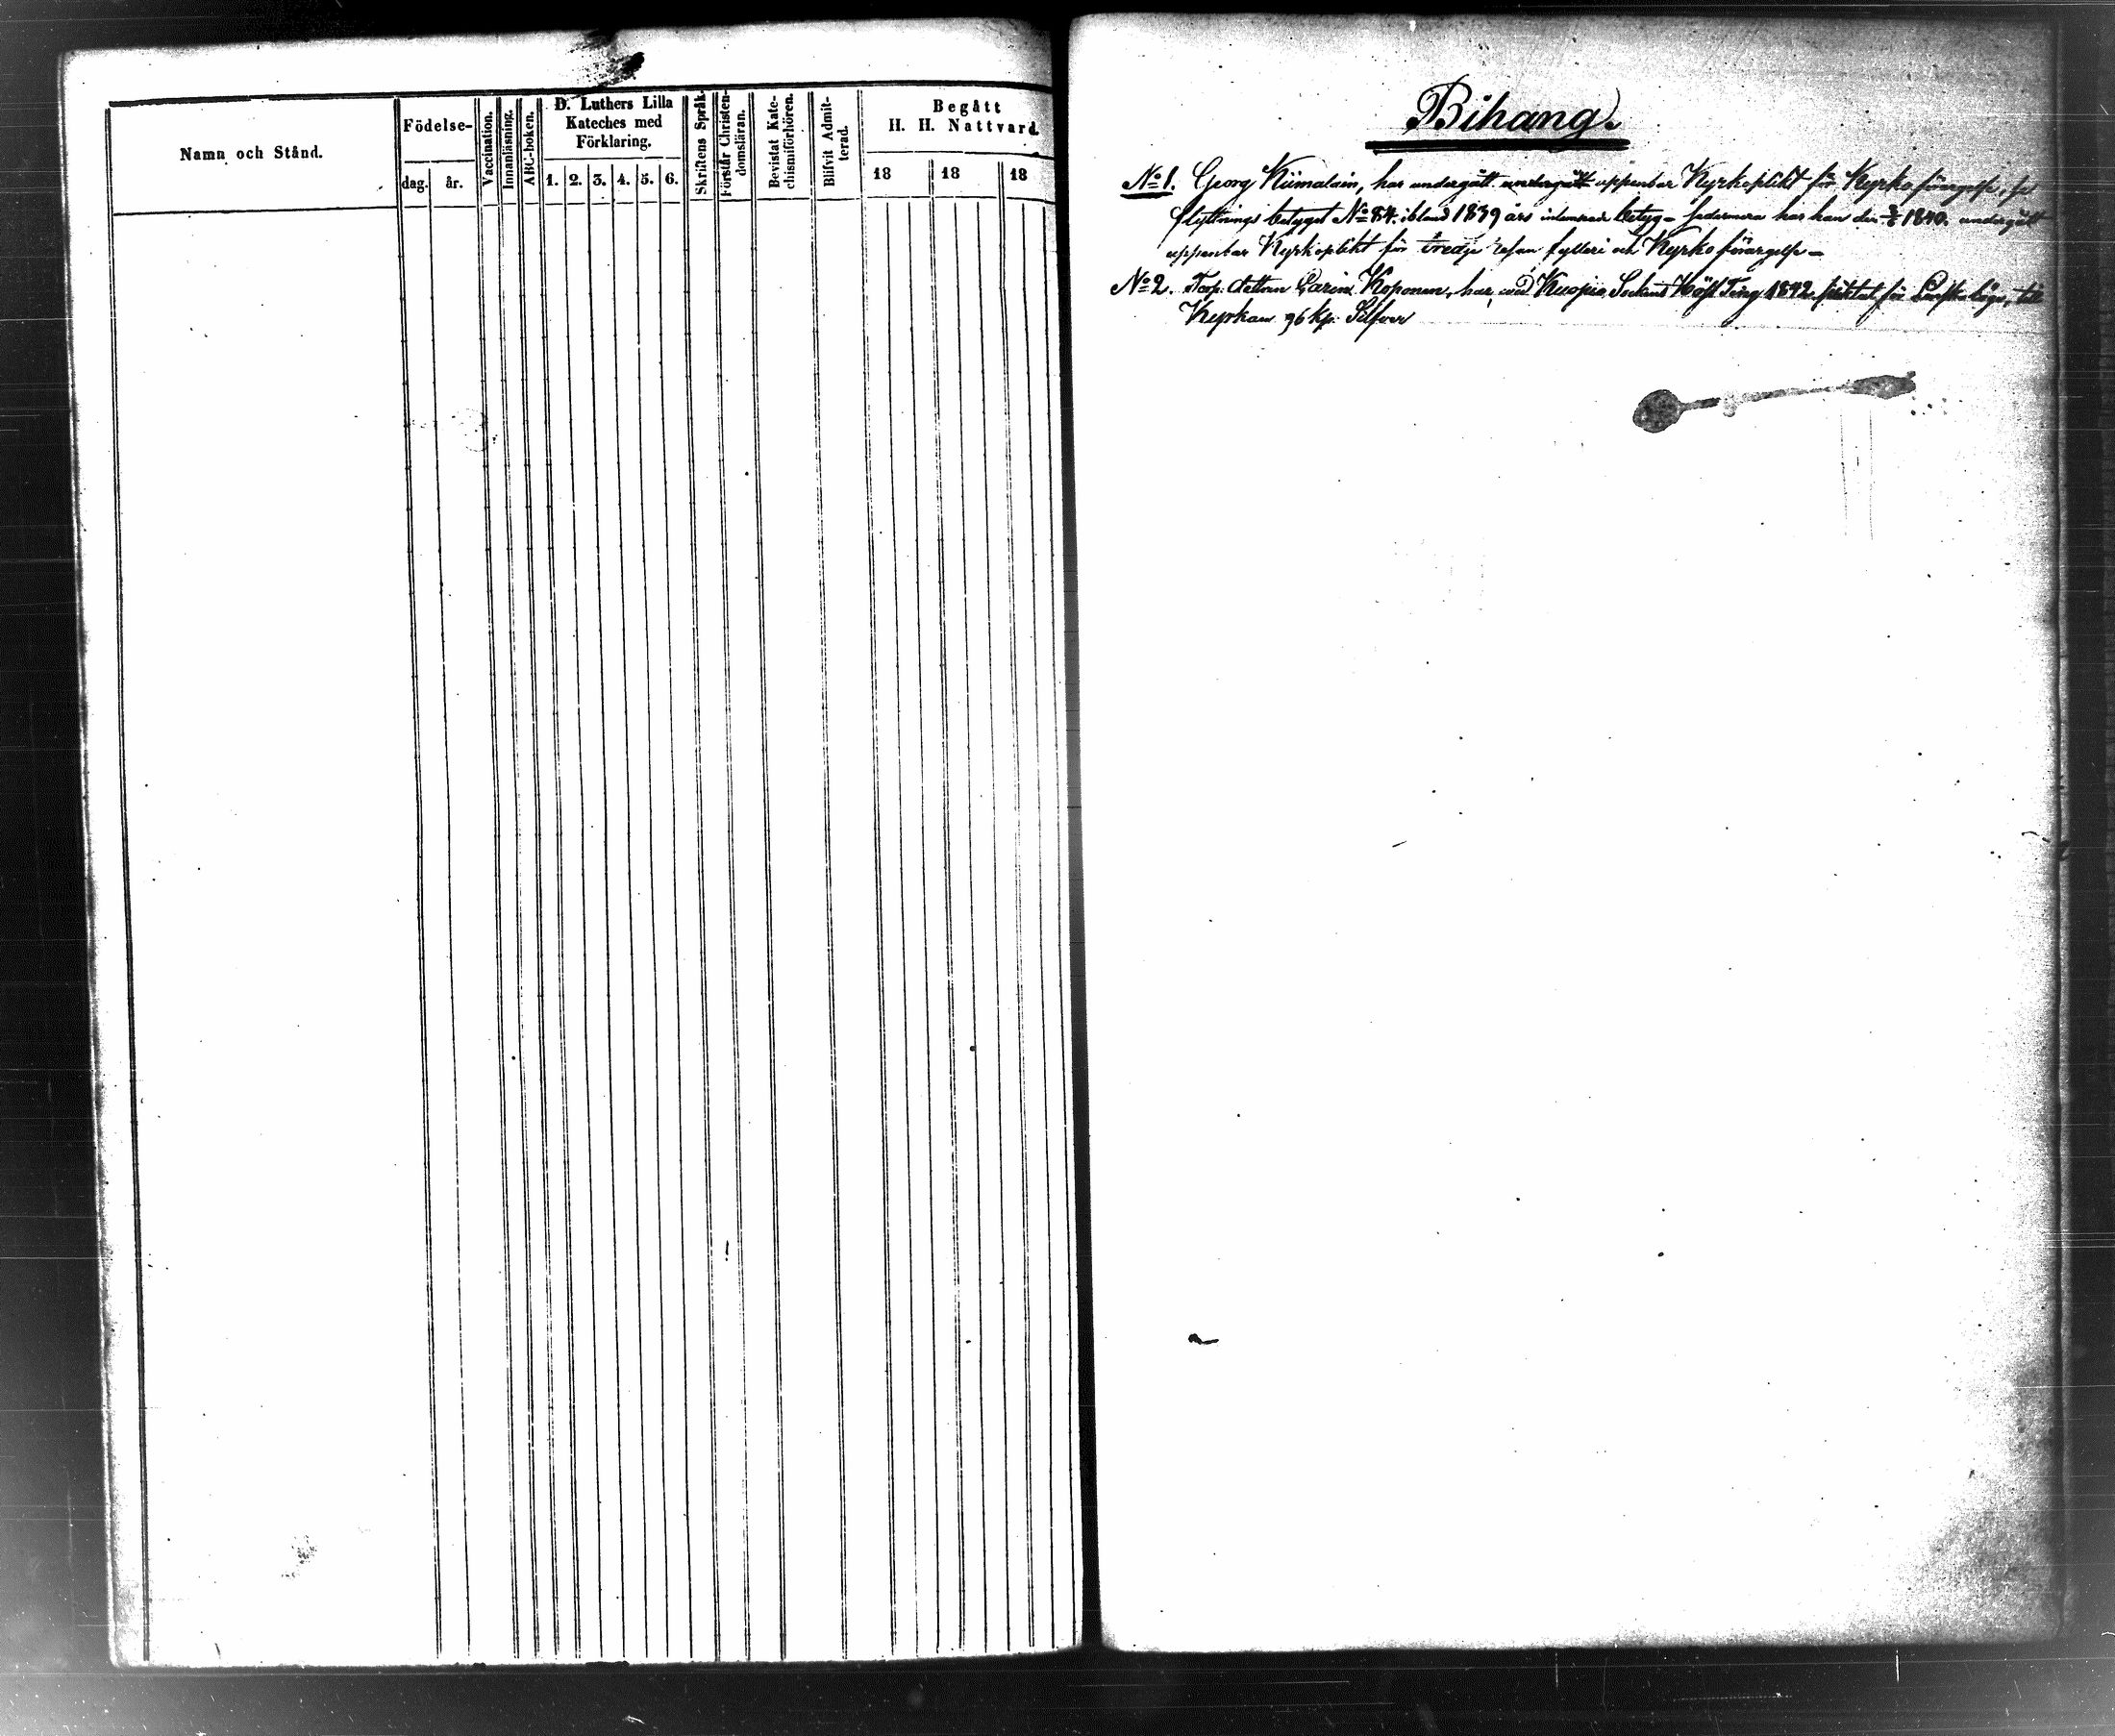 Namn och Stånd.
Födelse-
dag. år.
Vaccination.
Innanläsning.
ABC-boken.
D. Luthers Lilla
Kateches med
Förklaring.
1. 2. 3. 4. 5. 6.
Skriftens Språk
Förstår Christen-
domsläran.
Bevistat Kate-
chismiförhören.
Blifvit Admit-
terad.
Begått
H. H. Nattvard
18 18 18
Bihang.
No 1. Georg Kiimalain, har undergått undergått uppenbar Kyrkoplikt för Kyrko förargelse, se
flyttnings betyget No 84. ibland 1839 års betyg – sedermera har han den 1840. undergått
uppenbar Kyrkoplikt för tredje resan fylleri och Kyrko förargelse –
No 2. Torp. dottren Carin Koponen, har vid Kuopio Sockens Höst Ting 1842. pliktat för till
Kyrkan 96 kp. Silfver